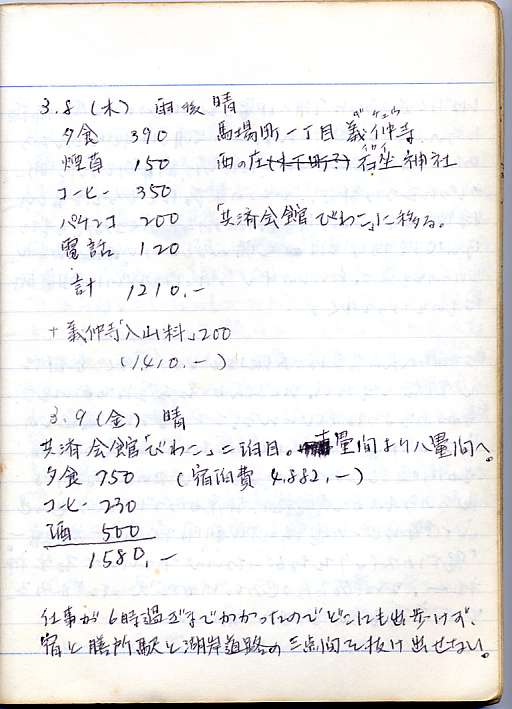 3.8 (木) 雨後晴
夕食 390 馬場町一丁目 義仲寺 ギチュウ
煙草 150 西の庄(木下町?) 石坐神社 イワイ
コーヒー 350
パチンコ 200 「共済会館びわこ」に移る。
電話 120
計 1210.-
+ 義仲寺「入山料」200
(1410.-)
3.9 (金) 晴
共済会館「びわこ」二泊目。 畳間より八畳間へ。
夕食 750 (宿泊費 4,882.-)
コーヒー 230
酒 500
1580.-
仕事が6時過ぎまでかかったのでどこにも出歩けず、
宿と膳所駅と湖岸道路の三点間で抜け出せない。